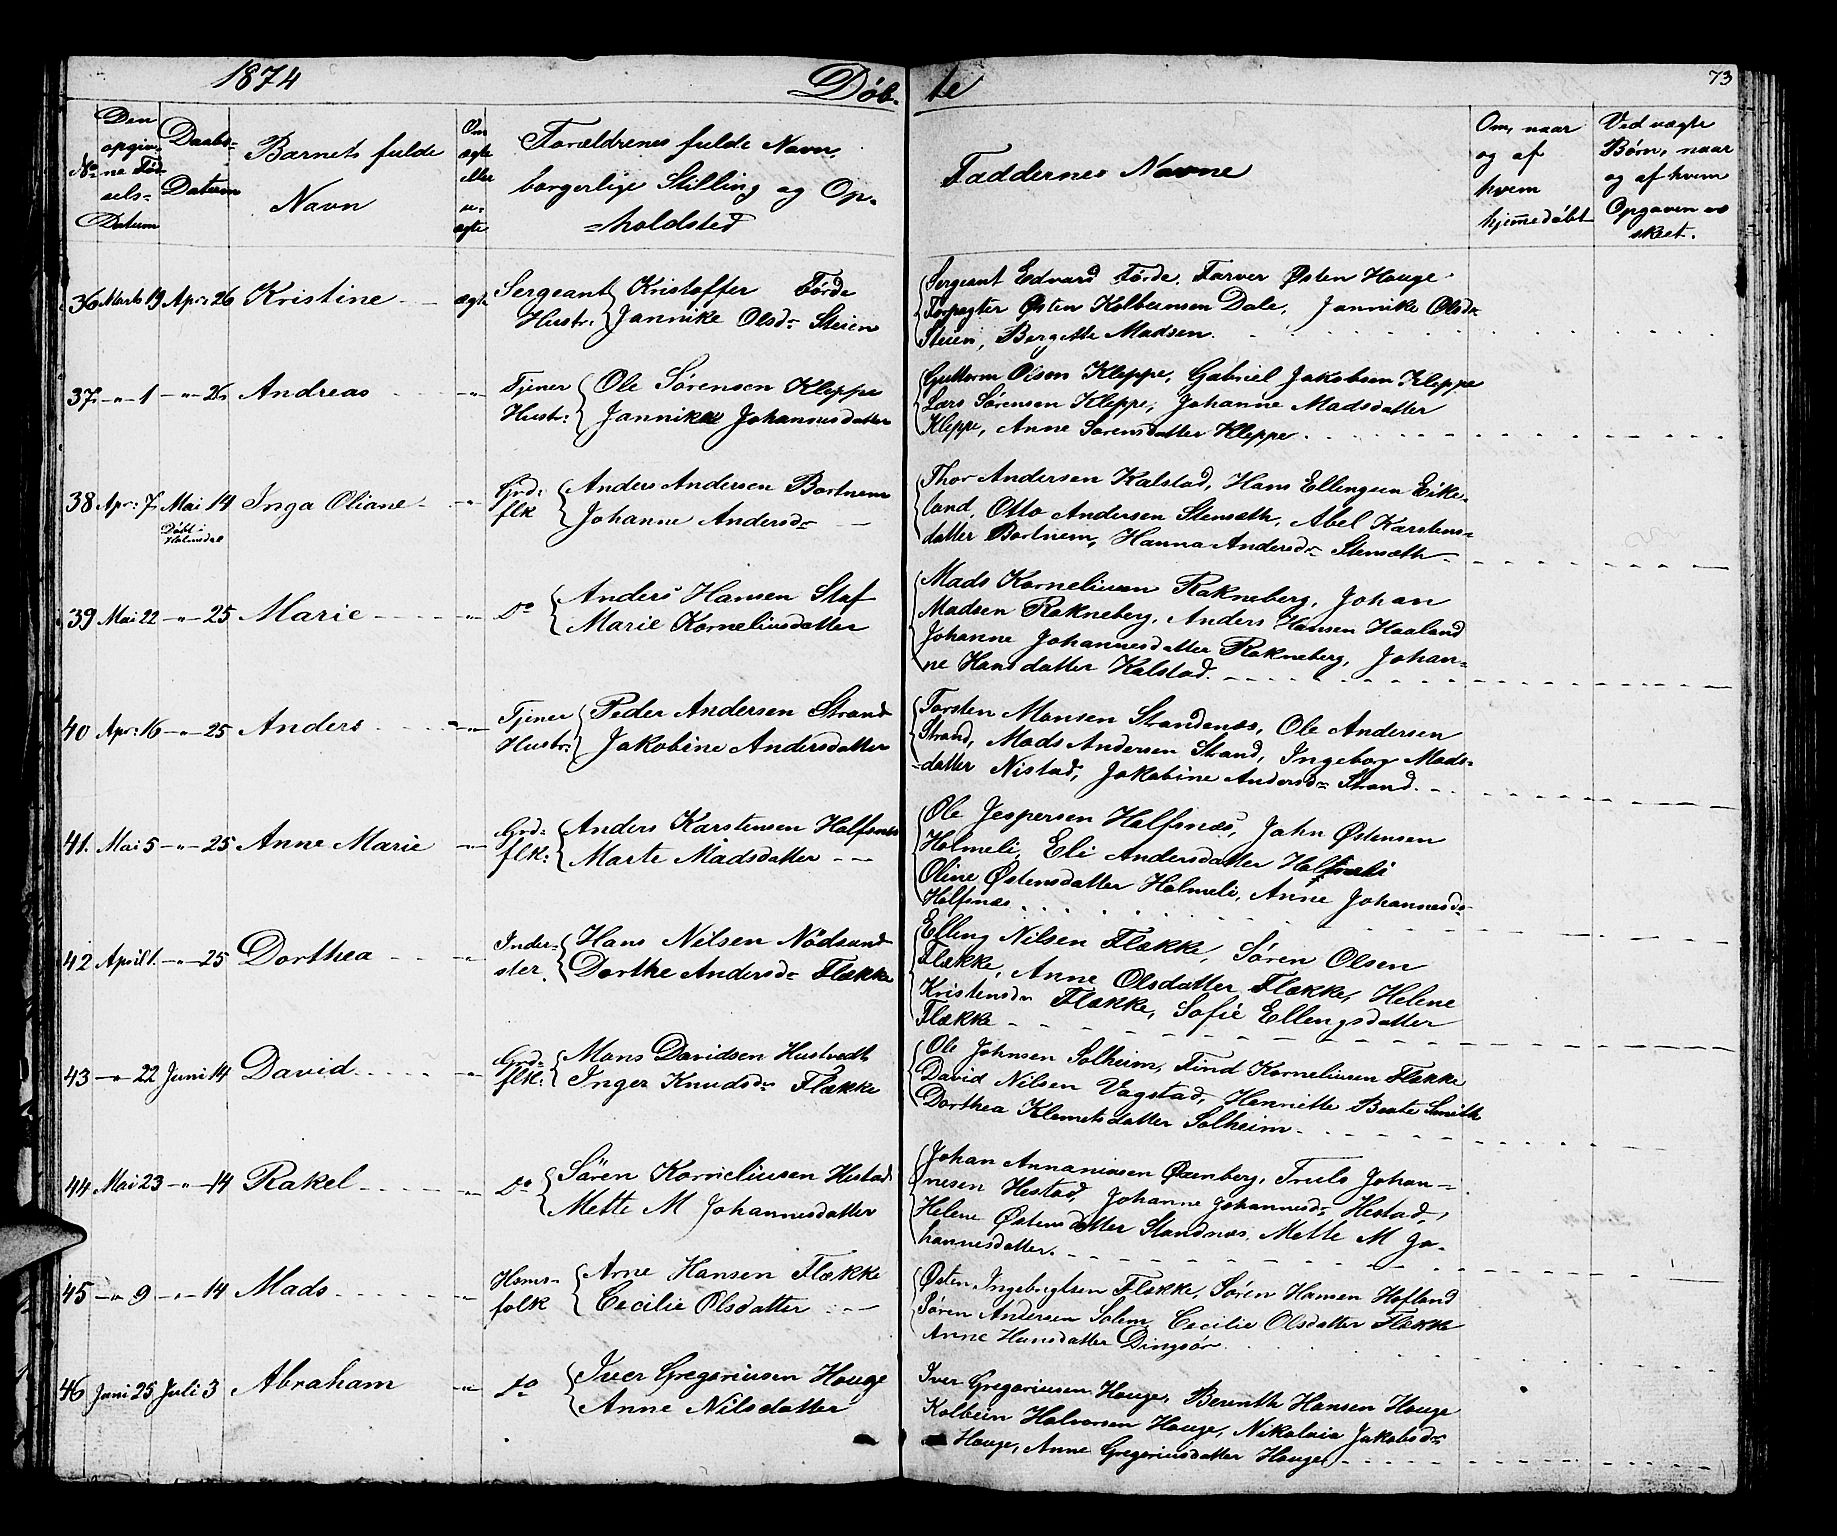 1874 Döb- te 73
No
Den opgivne Fødselsdatum
Daabs-Datum
Barnets fulde Navn
Om ægte eller uægte
Forældrenes fulde Navn, borgerlige Stilling og Op=holdsted
Faddernes Navne
Om, naar og af hvem hjemmedöbt
Ved uægte Børn, naar og af hvem Opgaven er skeet.
36 Marts 19 Apr: 26 Kristine ægt. Sergeant Kristoffer Förde
Hustr: Jannike Olsd= Steien
Sergeant Edvard Förde, Farver Østen Houge
Forpagter Østen Kolbeinsen Dale, Jannike Olsd=
Steien, Bergette Madsen.
37 -"- 1 -"- 26 Andreas -"- Tjener Ole Sörensen Kleppe
Hustr: Jannikke Johannesdatter
Guttorm Olsen Kleppe, Gabriel Jakobsen Kleppe
Lars Sörensen Kleppe, Johanne Madsdatter
Kleppe, Anne Sörensdatter Kleppe.
38 Apr: 7 Mai 14 Inga Oliane -"- Grd: Anders Andersen Bortnem
Döbt i Holmedal
flk Johanne Andersd=
Thor Andersen Kalstad, Hans Ellingsen Eike-
land, Otto Andersen Stensæth, Abel Karstens=
datter Bortnem, Hanna Andersd= Stensæth
39 Mai 22 -"- 25 Marie -"- Do Anders Hansen Staf
Marie Korneliusdatter
Mads Korneliusen Rakneberg, Johan
Madsen Rakneberg, Anders Hansen Haaland
Johanne Johannesdatter Rakneberg, Johan=
ne Hansdatter Kalstad.
40 Apr: 16 -"- 25 Anders -"- Tjener Peder Andersen Strand
Hustr: Jakobine Andersdatter
Torsten Monsen Strandenæs, Ole Andersen
Strand, Mads Andersen Strand, Ingeborg Mads=
=datter Nistad, Jakobine Andersd= Strand.
41. Mai 5 -"- 25 Anne Marie -"- Grd= Anders Karstensen Halfsnæs
flk: Marte Madsdatter
Ole Jespersen Halfsnæs, John Østensen
Holmeli, Eli Andersdatter
Oline Østensdatter Holmeli, Anne Johannesd=
Halfsnæs
42 April 1. -"- 25 Dorthea -"- Inder- Hans Nilsen Nödsund
ster. Dorthe Andersd= Flække
Elling Nilsen Flække, Sören Olsen
Flække, Anne Olsdatter Flække, Helene
Kristensd= Flække, Sofie Ellingsdatter
Flække
43 -"- 22 Juni 14 David -"- Grd= Mons Davidsen Hustvedt
flk: Inger Knudsd= Flække
Ole Johnsen Solheim, Find Korneliusen Flække
David Nilsen Vagstad, Henriette Beate Smith
Dorthea Klemetsdatter Solheim
44 Mai 23 -"- 14 Rakel -"- Do Sören Korneliusen Hestad
Mette M Johannesdatter
Johan Annaniasen Øxenberg, Truls Johan-=
nesen Hestad, Johanne Johannesd= Hestad,
Helene Østensdatter Standnæs, Mette M Jo-
hannesdatter.
45 -"- 9 -"- 14 Mads -"- Huus- Arne Hansen Flække
folk Cecilie Olsdatter
Østen Ingebrigtsen Flække, Sören Hansen Hofland
Sören Andersen Solem, Cecilie Olsdatter Flække
Anne Hansdatter Dingsör
46 Juni 25 Juli 3 Abraham -"- Do Iver Gregoriusen Houge
Anne Nilsdatter
Iver Gregoriusen Houge, Berenth Hansen Houge
Kolbein Halvorsen Houge, Nikolaia Jakobsd=
Houge, Anne Gregoriusdatter Houge